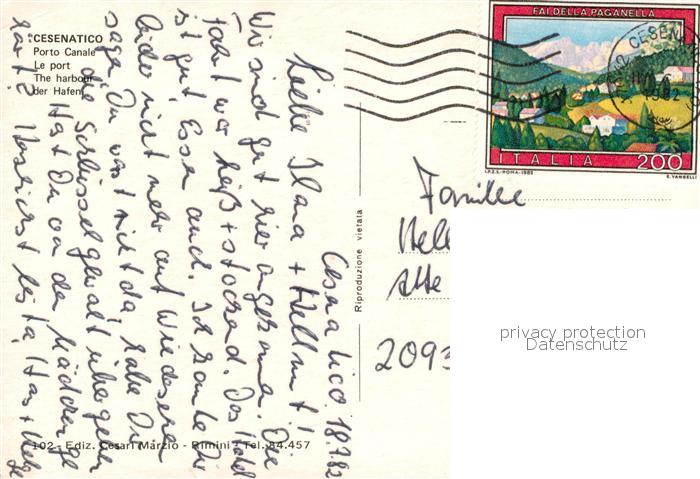 CESENATICO
Porto Canale
Le port
The harbour
der Hafen
Cesenatico. 18.7.82
Liebe Ilana + Hellmut!
Wir sind gut hier angekommen. Die
Fahrt war heiß + stockend. Das Hotel
ist gut, Essen auch. Ich konnte Dir
leider nicht mehr auf Wiedersehen
sagen, Du warst nicht da, habe Dir
die Schlüsselgewalt übergeben
Hast Du von den Mädchen ge
hört? Herzlichst
Riproduzione vietata
102 - Ediz. Cesari Marzio - Rimini - Tel. 84.457
FAI DELLA PAGANELLA
ITALIA 200
I.P.Z.S.-ROMA-1982
E. VANGELLI
CESEN
Familie
Hell
Alte
2093
privacy protection
Datenschutz